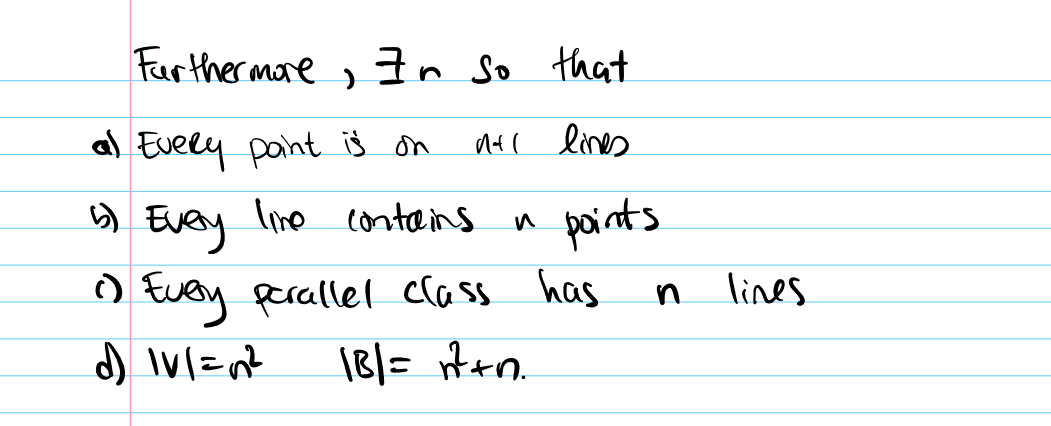 Furthermore, ∃n so that
a) Every point is on n+1 lines
b) Every line contains n points
c) Every parallel class has n lines
d) |V|=n² |B|= n²+n.